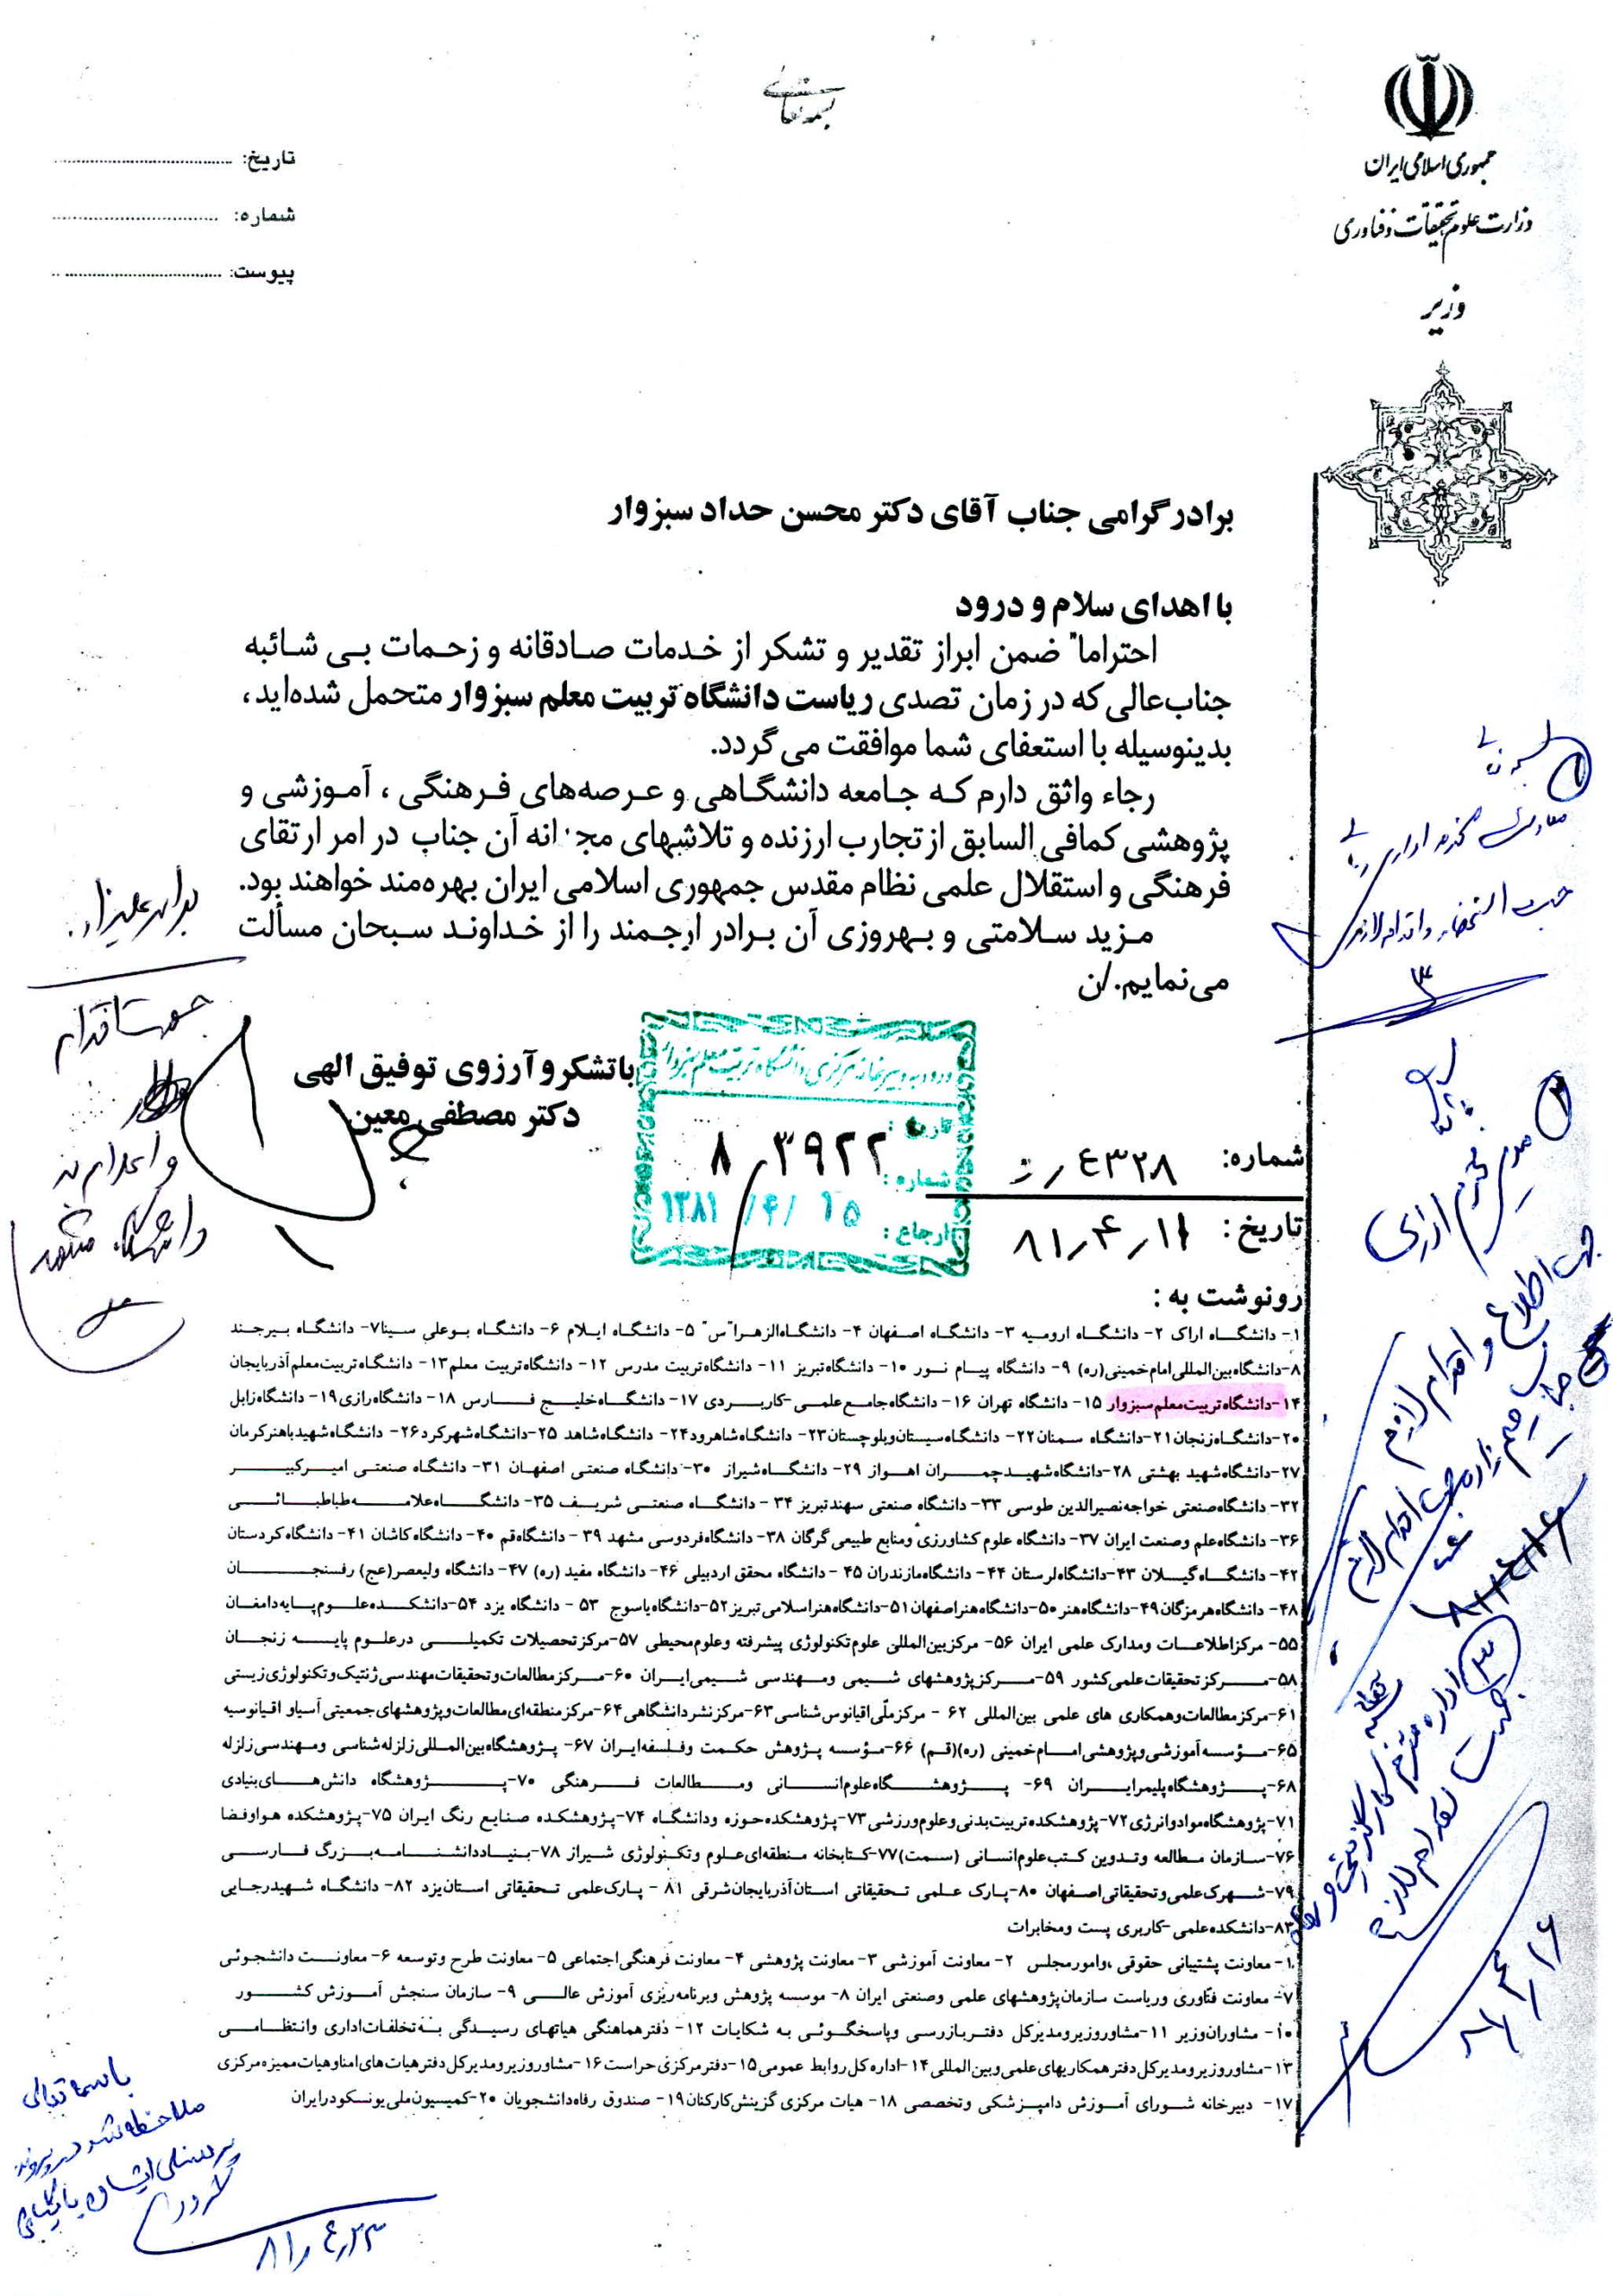 بسمه‌تعالی
جمهوری اسلامی ایران
وزارت علوم تحقیقات و فناوری
وزیر
تاریخ:
شماره:
پیوست:
برادر گرامی جناب آقای دکتر محسن حداد سبزوار
با اهدای سلام و درود
احتراما" ضمن ابراز تقدیر و تشکر از خدمات صادقانه و زحمات بی شائبه
جناب‌عالی که در زمان تصدی ریاست دانشگاه تربیت معلم سبزوار متحمل شده‌اید،
بدینوسیله با استعفای شما موافقت می گردد.
رجاء واثق دارم که جامعه دانشگاهی و عرصه‌های فرهنگی ، آموزشی و
پژوهشی کمافی السابق از تجارب ارزنده و تلاشهای آن جناب در امر ارتقای
فرهنگی و استقلال علمی نظام مقدس جمهوری اسلامی ایران بهره‌مند خواهند بود.
مزید سلامتی و بهروزی آن برادر ارجمند را از خداوند سبحان مسألت
می‌نمایم./ن
با تشکر و آرزوی توفیق الهی
دکتر مصطفی معین
ورود به دبیرخانه مرکزی دانشگاه تربیت معلم سبزوار
تاریخ:
۸/۳۹۲۲
شماره:
۱۳۸۱/۴/۱۵
ارجاع:
شماره: ۴۳۲۸/
تاریخ: ۸۱/۴/۱۱
رونوشت به :
۱- دانشگاه اراک ۲- دانشگاه ارومیه ۳- دانشگاه اصفهان ۴- دانشگاه‌الزهرا"س" ۵- دانشگاه ایلام ۶- دانشگاه بوعلی سینا۷- دانشگاه بیرجند
۸-دانشگاه بین‌المللی امام خمینی (ره) ۹- دانشگاه پیام نور ۱۰- دانشگاه تبریز ۱۱- دانشگاه تربیت مدرس ۱۲- دانشگاه تربیت معلم۱۳- دانشگاه تربیت معلم آذربایجان
۱۴-دانشگاه تربیت معلم سبزوار ۱۵- دانشگاه تهران ۱۶- دانشگاه جامع علمی-کاربردی ۱۷- دانشگاه خلیج فارس ۱۸- دانشگاه رازی ۱۹- دانشگاه زابل
۲۰-دانشگاه زنجان ۲۱-دانشگاه سمنان ۲۲- دانشگاه سیستان وبلوچستان ۲۳- دانشگاه شاهرود ۲۴- دانشگاه شاهد ۲۵-دانشگاه شهرکرد ۲۶- دانشگاه شهید باهنر کرمان
۲۷-دانشگاه شهید بهشتی ۲۸-دانشگاه شهید چمران اهواز ۲۹- دانشگاه شیراز ۳۰- دانشگاه صنعتی اصفهان ۳۱- دانشگاه صنعتی امیرکبیر
۳۲- دانشگاه صنعتی خواجه نصیرالدین طوسی ۳۳- دانشگاه صنعتی سهند تبریز ۳۴ - دانشگاه صنعتی شریف ۳۵- دانشگاه علامه طباطبائی
۳۶- دانشگاه علم وصنعت ایران ۳۷- دانشگاه علوم کشاورزی ومنابع طبیعی گرگان ۳۸- دانشگاه فردوسی مشهد ۳۹ - دانشگاه قم ۴۰- دانشگاه کاشان ۴۱- دانشگاه کردستان
۴۲- دانشگاه گیلان ۴۳-دانشگاه لرستان ۴۴- دانشگاه مازندران ۴۵ - دانشگاه محقق اردبیلی ۴۶- دانشگاه مفید (ره) ۴۷- دانشگاه ولیعصر(عج) رفسنجان
۴۸- دانشگاه هرمزگان ۴۹-دانشگاه هنر ۵۰-دانشگاه هنر اصفهان ۵۱-دانشگاه هنر اسلامی تبریز ۵۲-دانشگاه یاسوج ۵۳ - دانشگاه یزد ۵۴-دانشکده علوم پایه دامغان
۵۵- مرکز اطلاعات ومدارک علمی ایران ۵۶- مرکز بین‌المللی علوم تکنولوژی پیشرفته وعلوم محیطی ۵۷-مرکز تحصیلات تکمیلی درعلوم پایه زنجان
۵۸-مرکز تحقیقات علمی کشور ۵۹-مرکز پژوهشهای شیمی ومهندسی شیمی ایران ۶۰-مرکز مطالعات وتحقیقات مهندسی ژنتیک وتکنولوژی زیستی
۶۱-مرکز مطالعات وهمکاری های علمی بین‌المللی ۶۲ - مرکز ملی اقیانوس شناسی ۶۳-مرکز نشر دانشگاهی ۶۴-مرکز منطقه‌ای مطالعات وپژوهشهای جمعیتی آسیا و اقیانوسیه
۶۵-مؤسسه آموزشی وپژوهشی امام خمینی (ره)(قم) ۶۶-مؤسسه پژوهش حکمت وفلسفه ایران ۶۷- پژوهشگاه بین‌المللی زلزله شناسی ومهندسی زلزله
۶۸-پژوهشگاه پلیمر ایران ۶۹- پژوهشگاه علوم انسانی ومطالعات فرهنگی ۷۰-پژوهشگاه دانش های بنیادی
۷۱-پژوهشگاه مواد وانرژی ۷۲-پژوهشکده تربیت بدنی وعلوم ورزشی ۷۳-پژوهشکده حوزه ودانشگاه ۷۴-پژوهشکده صنایع رنگ ایران ۷۵-پژوهشکده هوا وفضا
۷۶-سازمان مطالعه وتدوین کتب علوم انسانی (سمت) ۷۷-کتابخانه منطقه‌ای علوم وتکنولوژی شیراز ۷۸-بنیاد دانشنامه بزرگ فارسی
۷۹-شهرک علمی وتحقیقاتی اصفهان ۸۰-پارک علمی تحقیقاتی استان آذربایجان شرقی ۸۱ - پارک علمی تحقیقاتی استان یزد ۸۲- دانشگاه شهید رجایی
۸۳-دانشکده علمی-کاربری پست ومخابرات
۱- معاونت پشتیبانی حقوقی ،وامورمجلس ۲- معاونت آموزشی ۳- معاونت پژوهشی ۴- معاونت فرهنگی اجتماعی ۵- معاونت طرح وتوسعه ۶- معاونت دانشجوئی
۷- معاونت فنآوری وریاست سازمان پژوهشهای علمی وصنعتی ایران ۸- موسسه پژوهش وبرنامه‌ریزی آموزش عالی ۹- سازمان سنجش آموزش کشور
۱۰- مشاوران وزیر ۱۱-مشاوروزیرومدیرکل دفتربازرسی وپاسخگوئی به شکایات ۱۲- دفترهماهنگی هیاتهای رسیدگی به تخلفات اداری وانتظامی
۱۳-مشاوروزیرومدیرکل دفترهمکاریهای علمی وبین المللی ۱۴-اداره کل روابط عمومی ۱۵-دفتر مرکزی حراست ۱۶-مشاوروزیرومدیرکل دفترهیات های امناوهیات ممیزه مرکزی
۱۷- دبیرخانه شورای آموزش دامپزشکی وتخصصی ۱۸- هیات مرکزی گزینش کارکنان ۱۹- صندوق رفاه دانشجویان ۲۰-کمیسیون ملی یونسکودرایران
جهت اقدام
و اعلام به
دانشگاه مشهد
جهت استحضار و اقدام لازم
جهت اطلاع و اقدام لازم
۸۱/۴/۱۶
باسمه تعالی
ملاحظه شد در پرونده
پرسنلی ایشان بایگانی
گردد
۸۱/۴/۲۳